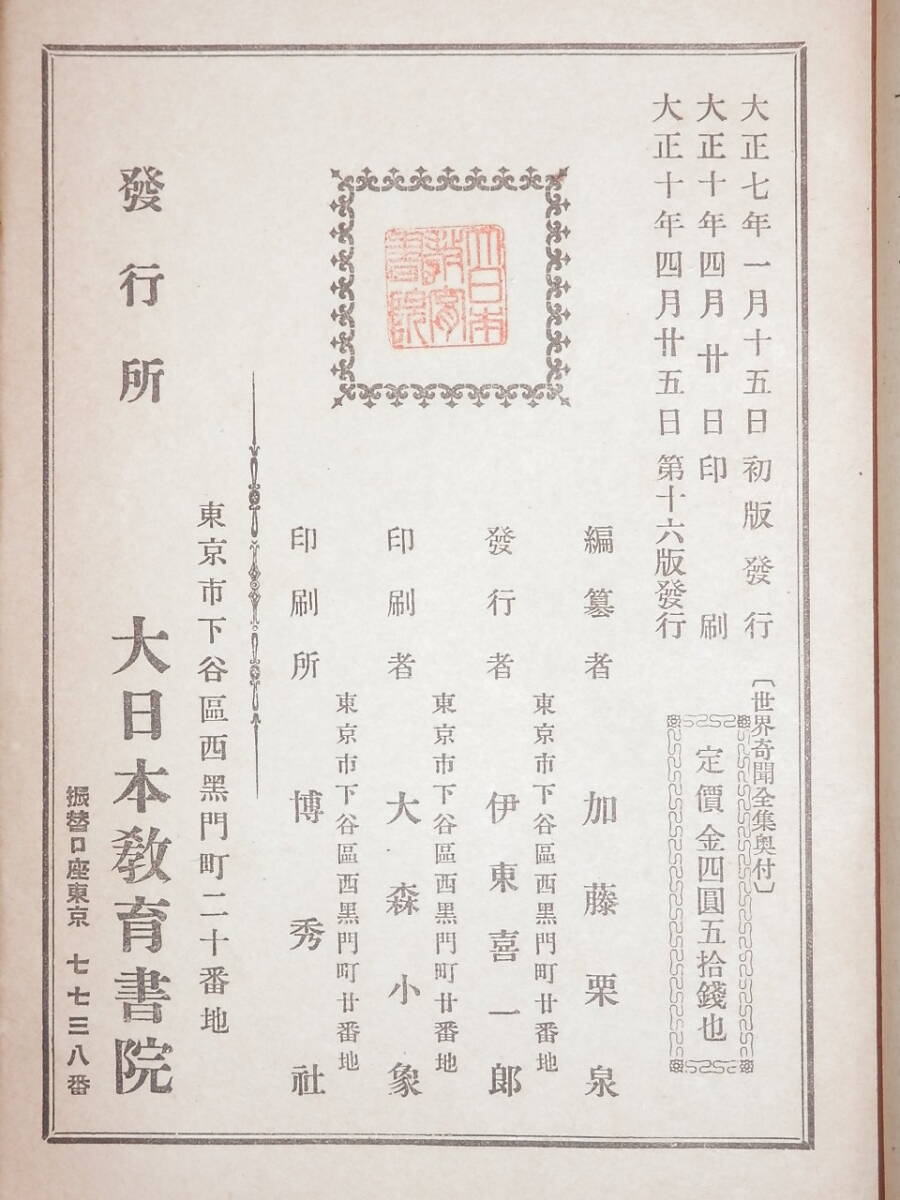 大正七年一月十五日初版發行
大正十年四月廿日印刷
大正十年四月廿五日第十六版發行
〔世界奇聞全集奥付〕
定價金四圓五拾錢也
大日本
教育
書院
編纂者 加藤栗泉
東京市下谷區西黑門町廿番地
發行者 伊東喜一郎
東京市下谷區西黑門町廿番地
印刷者 大森小象
東京市下谷區西黑門町廿番地
印刷所 博秀社
東京市下谷區西黑門町二十番地
發行所 大日本教育書院
振替口座東京 七七三八番